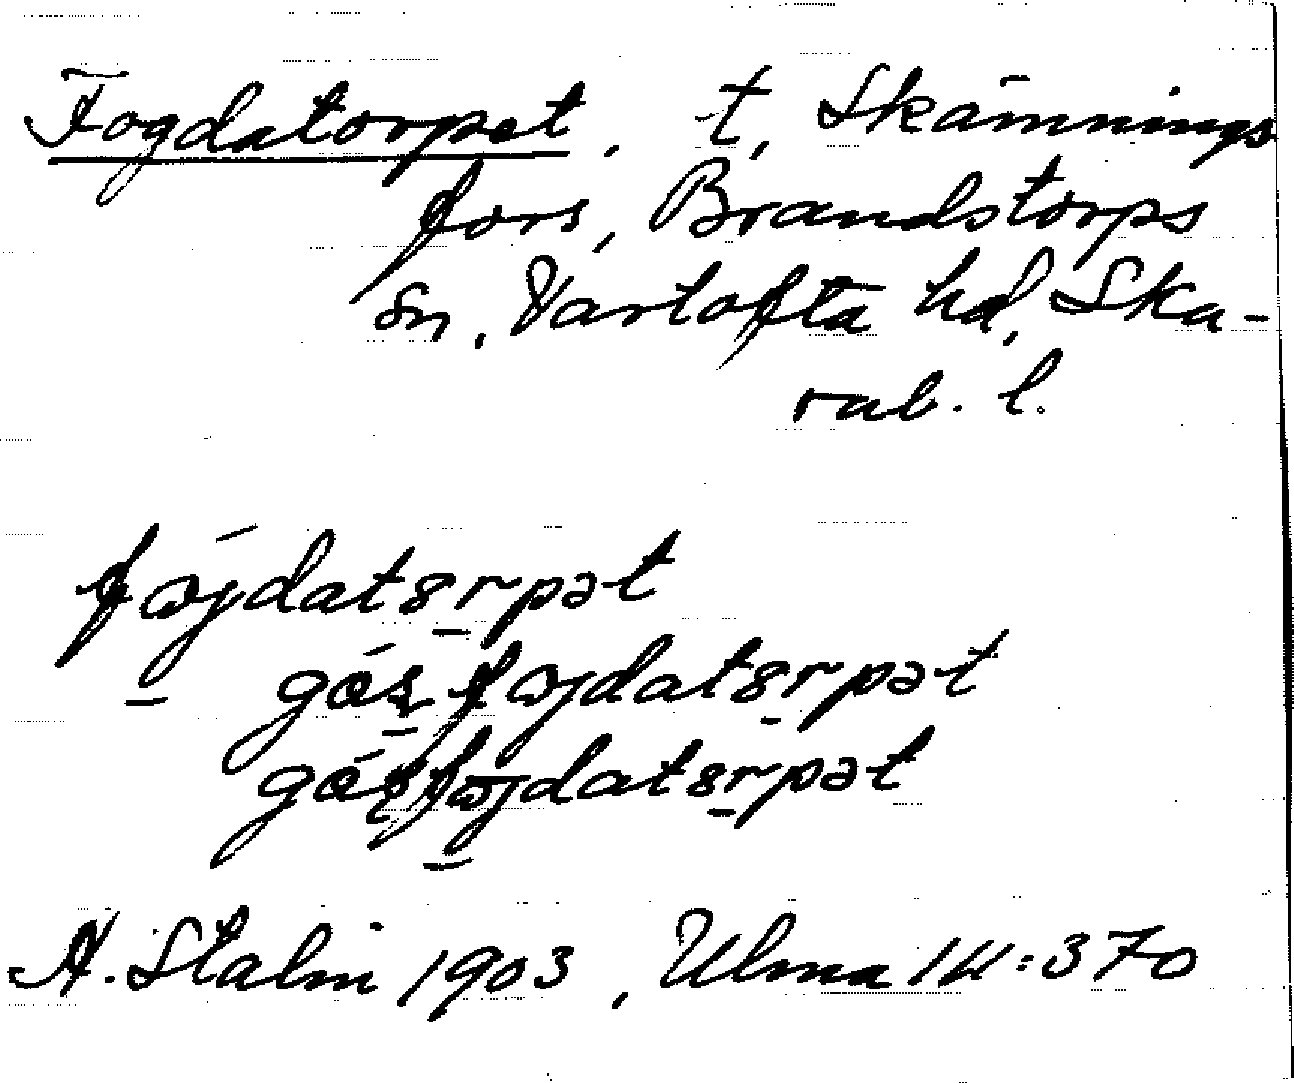 Fogdatorpet, t, Skämnings
fors, Brandstorps
sn, Vartofta hd, Ska-
rab. l.
fωjdat8rpət
fωjdat8rpət
fωjdat8rpət
A. Stalin 1903, Ulma 14:370